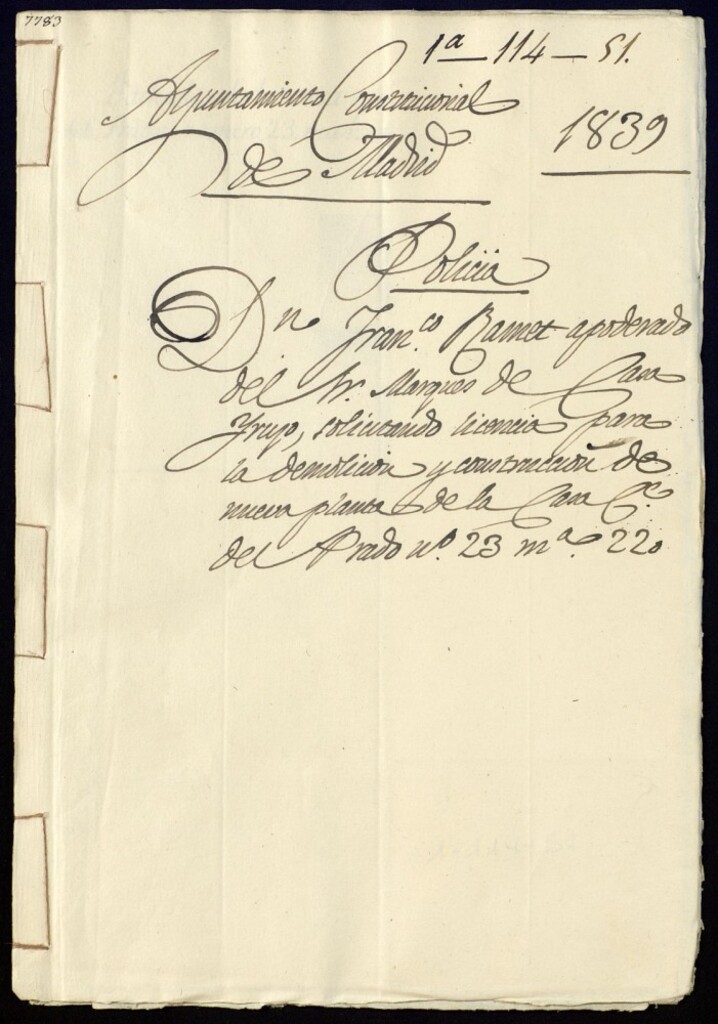 7783
1ª - 114 - 51.
Ayuntamiento Constitucional
de Madrid
1839
Policia
Dn Franco Ramet apoderado
del Sr. Marques de Casa
Yrujo, solicitando licencia para
la demolicion y construccion de
nueva planta de la Casa Ce.
del Prado nº. 23 mª. 220